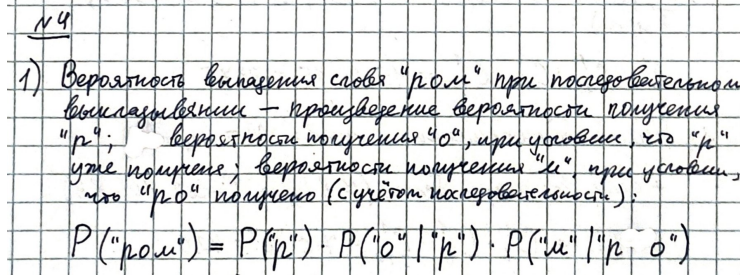 №4
1) Вероятность выпадения слова "ром" при последовательном
выкладывании — произведение вероятности получения
"р"; вероятности получения "о", при условии, что "р"
уже получена; вероятности получения "м", при условии,
что "ро" получено (с учётом последовательности):
P("ром") = P("р") · P("о" | "р") · P("м" | "р о")